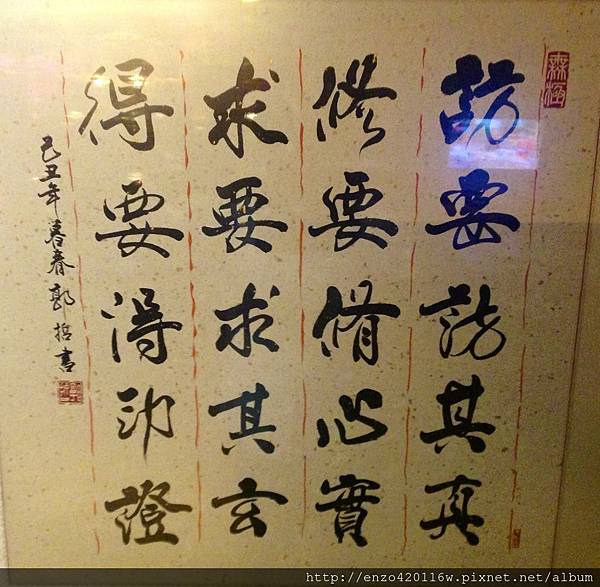 訪要訪其真
修要脩心實
求要求其玄
得要得印證
己丑年暮春郭哲書
http://enzo420116w.pixnet.net/album